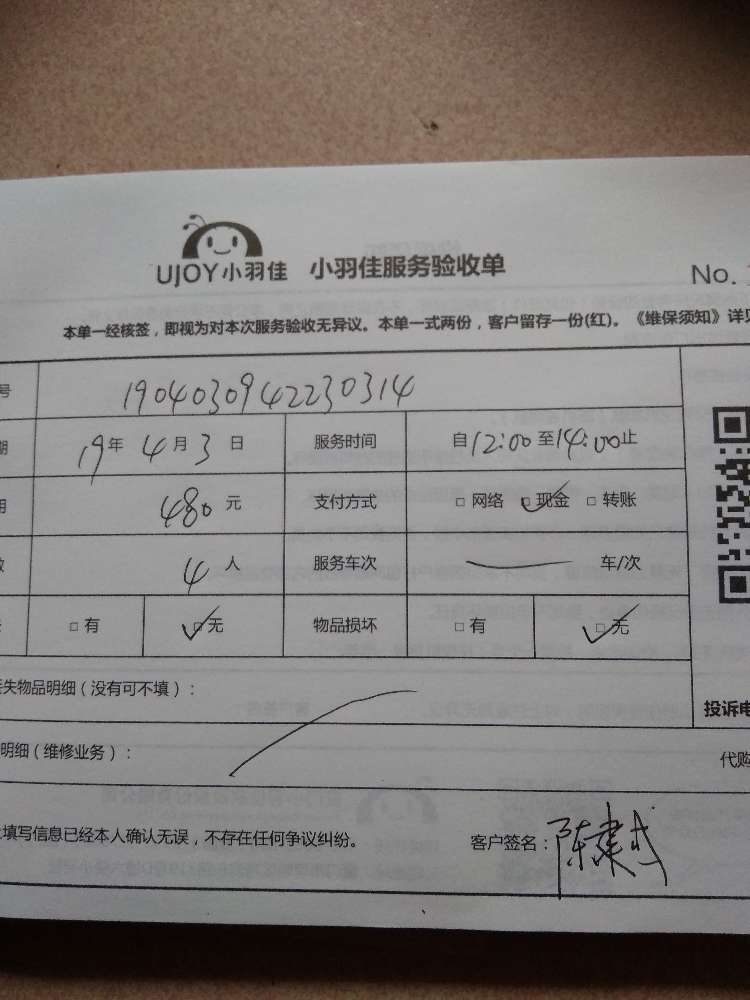 UJOY小羽佳 小羽佳服务验收单
No.
本单一经核签，即视为对本次服务验收无异议。本单一式两份，客户留存一份(红)。《维保须知》详见
号 1904030942230314
期 19年4月3日 服务时间 自12:00至14:00止
用 480元 支付方式 □网络 □现金 □转账
数 4人 服务车次 车/次
□有 □无 物品损坏 □有 □无
丢失物品明细（没有可不填）：
投诉电
明细（维修业务）：
代购
上填写信息已经本人确认无误，不存在任何争议纠纷。 客户签名：陈建武